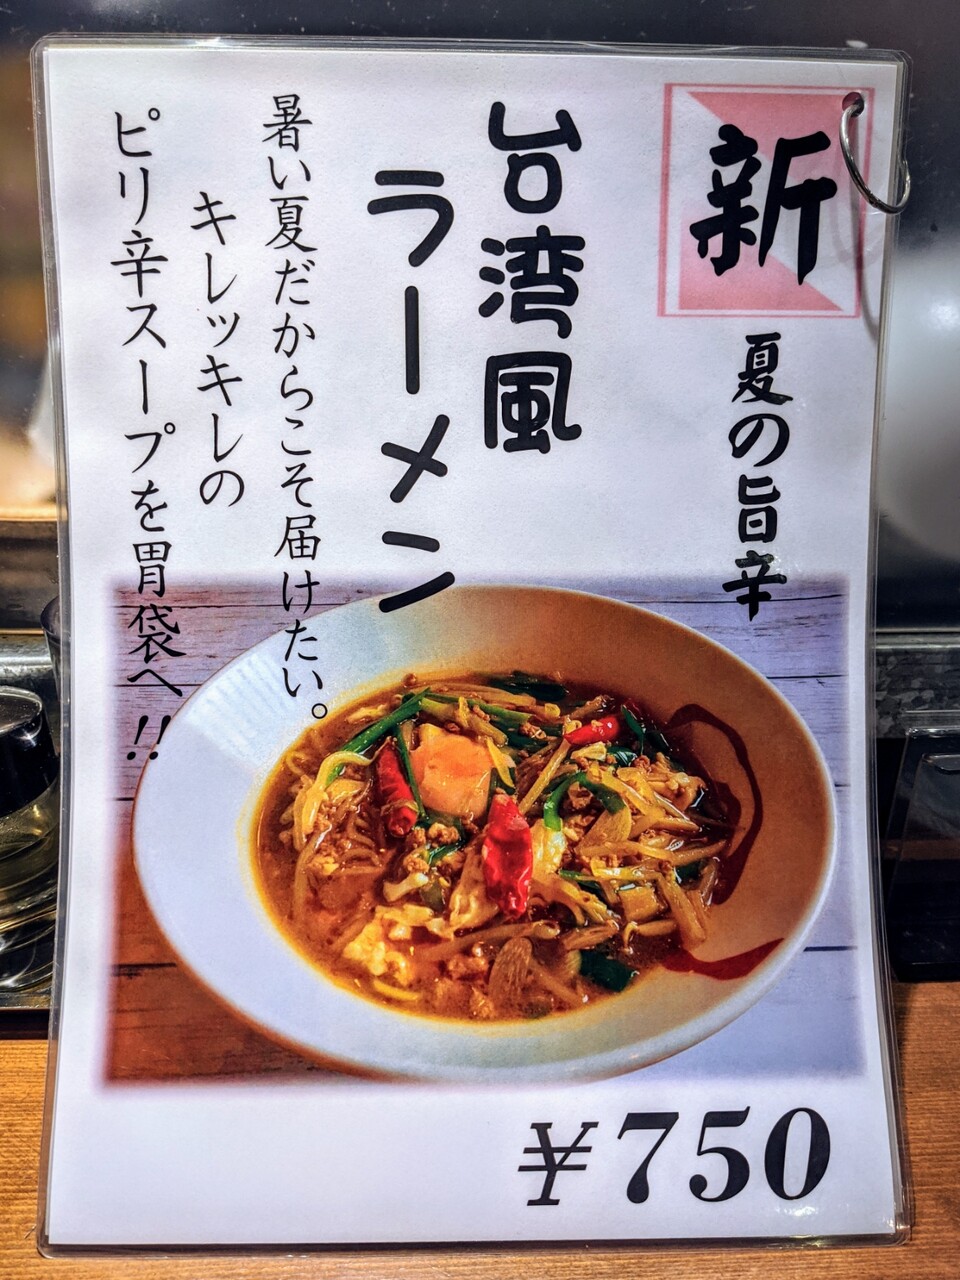 新
夏の旨辛
台湾風
ラーメン
暑い夏だからこそ届けたい。
キレッキレの
ピリ辛スープを胃袋へ!!
¥750